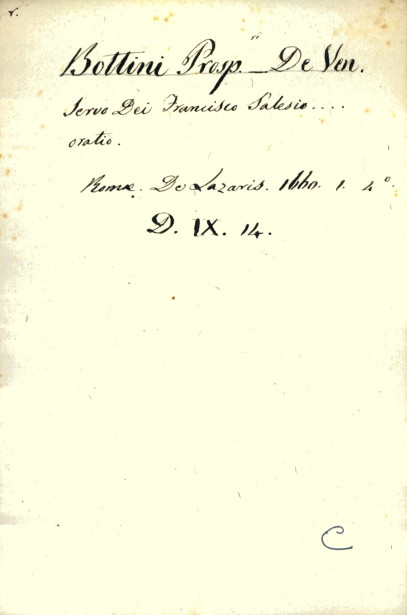 r.
Bottini Prosp.ii _ De Ven.
Servo Dei Francisco Salesio ....
oratio.
Romæ. De Lazaris. 1660. 1. 4º
D. IX. 14.
C